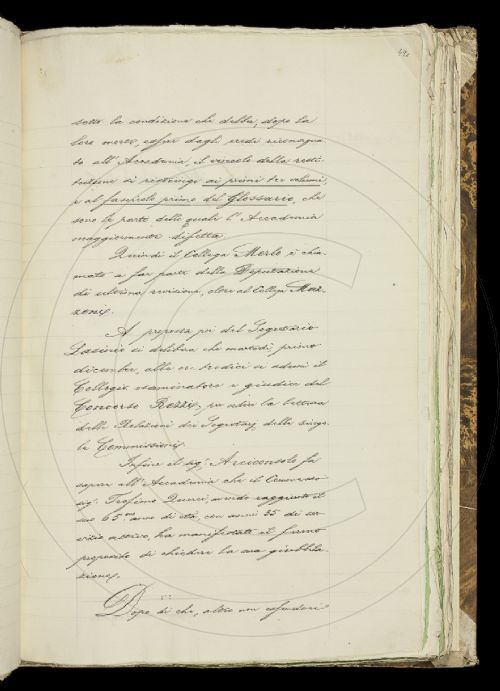 sotto la condizione che debba, dopo la
loro morte, esser dagli eredi riconsegna-
to all' Accademia, il vincolo della resti-
tuzione si restringe ai primi tre volumi,
e al fascicolo primo del Glossario, che
sono le parti delle quali l' Accademia
maggiormente difetta.
Quindi il Collega Merlo è chia-
mato a far parte della Deputazione
di ultima revisione, oltre al Collega Maz-
zoni.
A proposta poi del Segretario
si delibera che martedì, primo
dicembre, alle ore tredici si aduni il
Collegio esaminatore e giudice del
Concorso Rezzi, per udire la lettura
delle Relazioni dei Segretarj delle singo-
le Commissioni.
Infine il sig. Arciconsolo fa
sapere all' Accademia che il
sig. Trofimo avendo raggiunto il
suo 65º anno di età, con anni 35 di ser-
vizio attivo, ha manifestato il fermo
proposito di chiedere la sua giubbila-
zione.
Dopo di che, altro non essendovi